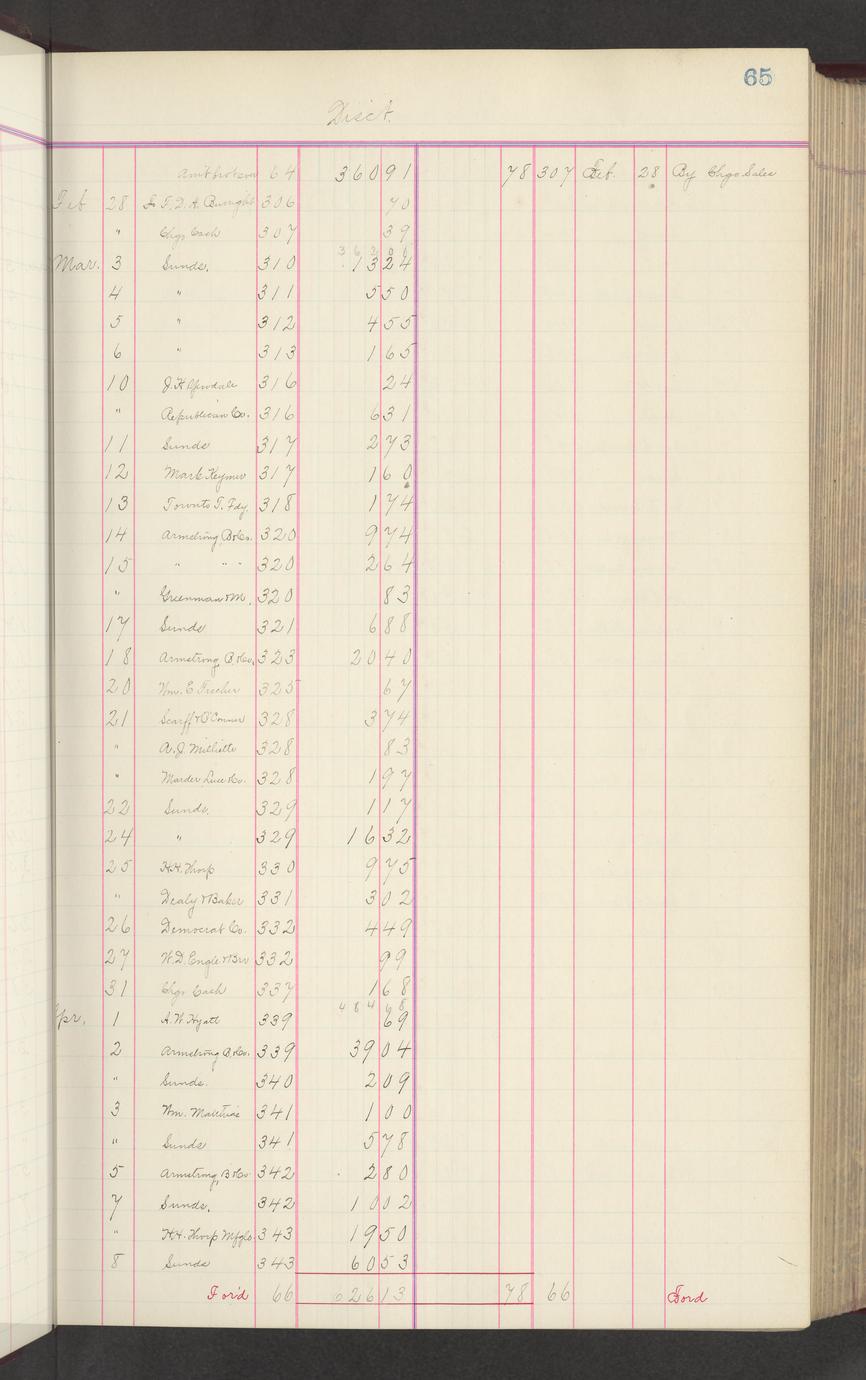 65
Disct.
Amt brot over 64 360 91 78 307 Feb. 28 By Chgo Sales
Feb 28 306 70
" Chgo Cash 307 39
362 00
Mar. 3 Sunds. 310 13 24
4 " 311 5 50
5 " 312 4 55
6 " 313 1 65
10 J.H. 316 24
" Republican Co. 316 6 31
11 Sunds 317 2 73
12 Mark Keymer 317 1 60
13 Toronto T. Fdy. 318 1 74
14 Armstrong B&Co. 320 9 74
15 " " " 320 2 64
" Greenman & M. 320 83
17 Sunds 321 6 88
18 Armstrong, B&Co. 323 20 40
20 Wm. E. Fischer 325 67
21 Scarff & O'Connor 328 3 74
" A. J. 328 83
" Marder Luse & Co. 328 1 97
22 Sunds. 329 1 17
24 " 329 16 32
25 H.H. Thorp 330 9 75
" Dealy & Baker 331 3 02
26 Democrat Co. 332 4 49
27 W. D. Engle & Bro 332 99
31 Chgo Cash 337 1 68
484 68
Apr. 1 A. W. Hyatt 339 69
2 Armstrong B.&Co. 339 39 04
" Sunds. 340 2 09
3 Wm. 341 1 00
" Sunds 341 5 78
5 Armstrong, B&Co 342 2 80
7 Sunds. 342 10 02
" H.H. Thorp Mfg Co. 343 19 50
8 Sunds 343 60 53
For'd 66 626 13 78 66 Ford